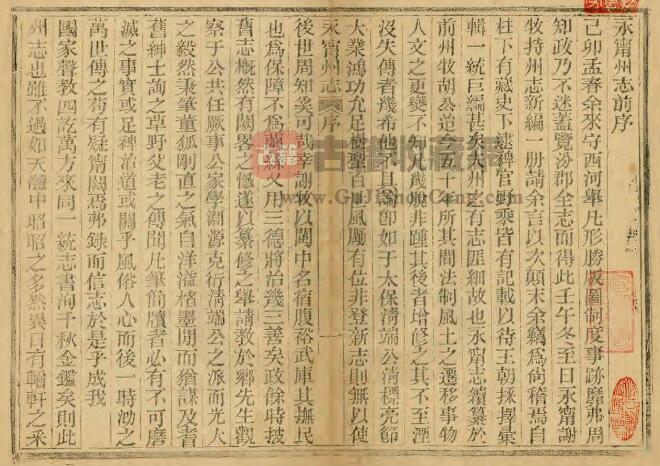 永甯州志前序
己卯孟春余來守西河舉凡形勝版圖制度事跡靡弗周
知政乃不迷蓋覽汾郡全志而得此壬午冬至日永甯謝
牧持州志新編一册請余言以次顛末余竊為尚稽焉自
柱下有藏史下逮稗官野乘皆有記載以待王朝採擇彙
輯一統巨編甚矣大州之有志匪細故也永甯志續纂於
前州牧胡公迄今五十年所其間法制風土之遷移事物
人文之更變不知凡幾脫非踵其後者增修之其不至湮
沒失傳者幾希他不具論卽如于太保清端公清標亮節
大業鴻功允足樹聖百世風勵有位非登新志則無以使
永甯州志 序 一
後世周知矣可哉幸謝牧以閩中名宿腹裕武庫其撫民
也為保障不為繭絲乂用三德將治幾三善矣政餘時披
舊志概然有闕畧之憾遂以纂修之舉請教於鄉先生觀
察于公共任厥事公家學淵源克衍清端公之派而光大
之毅然秉筆董狐剛直之氣自洋溢楮墨閒而猶謀及耆
舊紳士詢之草野父老之傳聞凡筆簡牘者必有不可磨
滅之事實或足裨治道或關乎風俗人心而後一時泐之
萬世傳之苟有疑甯闕焉弗録而信志於是乎成我
國家聲教四訖萬方來同一統志書洵千秋金鑑矣則此
州志也雖不過如天體中昭昭之多然異日有輶軒之采
古籍收藏
www.GuJiShouCang.com